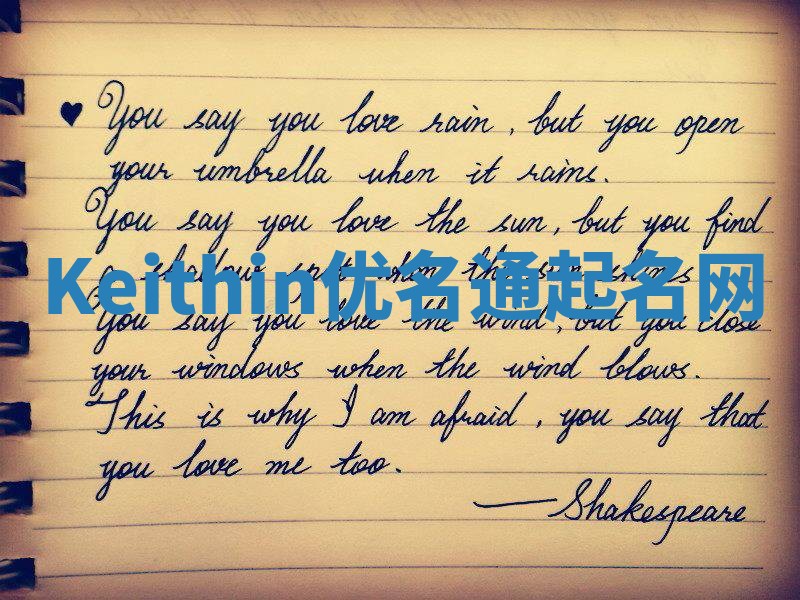 You say you love rain, but you open
your umbrella when it rains.
You say you love the sun, but you find
a shadow spot when the sun shines
Keithin优名通起名网
You say you love the wind, but you close
your windows when the wind blows.
This is why I am afraid, you say that
you love me too.
—Shakespeare